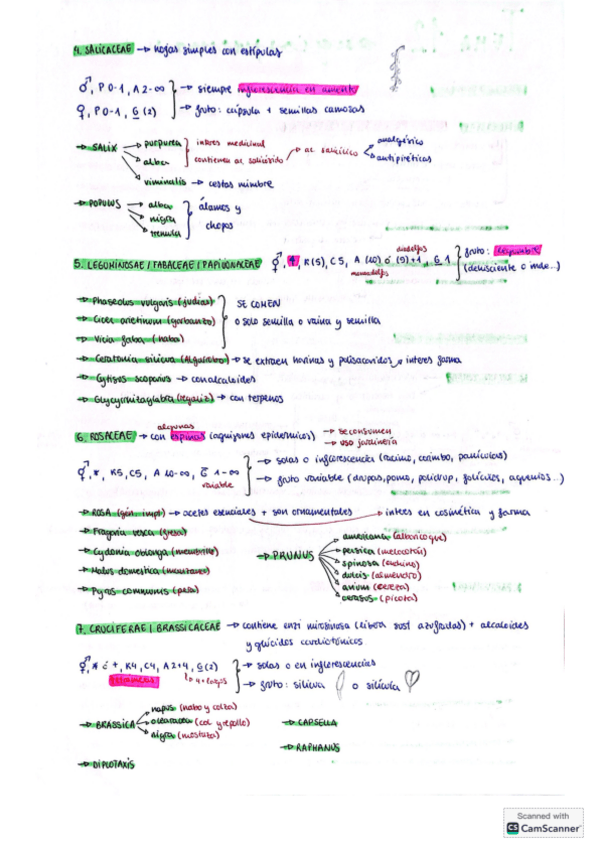 4. SALICACEAE → hojas simples con estípulas
♂, P 0-1, A 2-∞ → siempre inflorescencia en amento
♀, P 0-1, G (2) → fruto: cápsula + semillas canosas
→ SALIX
purpurea
alba
viminalis → cestas mimbre
interes medicinal
contienen al. salicósido → ac salicílico
analgésico
antipiréticas
→ POPULUS
alba
nigra
tremula
álamos y
chopos
5. LEGUMINOSAE / FABACEAE / PAPILIONACEAE ⚥, K(5), C5, A (10) ó (9)+1, G 1
diadelfos
monadelfos
fruto: legumbre
(dehiscente o inde...)
→ Phaseolus vulgaris (judías)
→ Cicer arietinum (garbanzo)
→ Vicia faba (haba)
SE COMEN
o solo semilla o vaina y semilla
→ Ceratonia siliqua (Algarrobo) → se extraen harinas y polisacaridos → interes farma
→ Cytisos scoparius → con alcaloides
→ Glycyrrhiza glabra (regaliz) → con terpenos
algunas
6. ROSACEAE → con espinas (aguijones epidermicos)
→ se consumen
→ uso jardinería
⚥, *, K5, C5, A 10-∞, G 1-∞
variable
→ solas o inflorescencias (racimo, corimbo, panículas)
→ fruto variable (drupas, poma, polidrup, folículos, aquenios...)
→ ROSA (gén. impt) → aceites esenciales + son ornamentales → interes en cosmética y farma
→ Fragaria vesca (fresa)
→ Cydonia oblonga (membrillo)
→ Malus domestica (manzano)
→ Pyrus communis (pera)
→ PRUNUS
armeniana (albaricoque)
persica (melocotón)
spinosa (endrino)
dulcis (almendro)
avium (cereza)
cerasus (picota)
7. CRUCIFERAE / BRASSICACEAE → contiene enzi mirosinosa (libera sust azufradas) + alcaloides
y glúcidos cardiotónicos
⚥, * ó +, K4, C4, A 2+4, G (2)
→ solas o en inflorescencias
→ fruto: silicua o silícula
→ BRASSICA
napus (nabo y colza)
oleracea (col y repollo)
nigra (mostaza)
→ CAPSELLA
→ RAPHANUS
→ DIPLOTAXIS
Scanned with
CS CamScanner